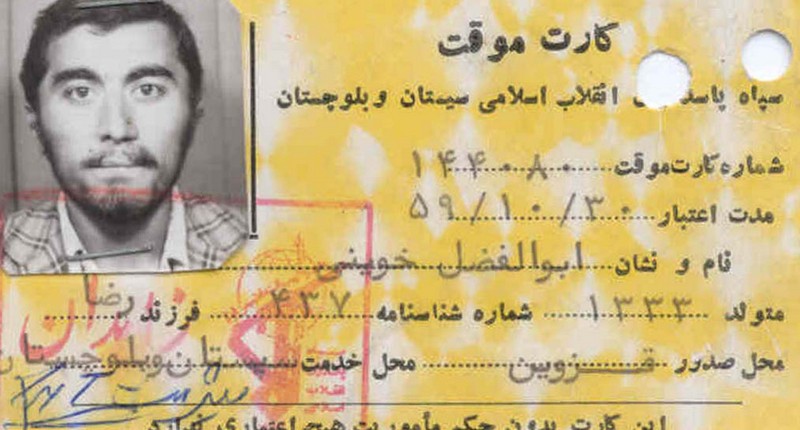 کارت موقت
سپاه پاسد انقلاب اسلامی سیستان و بلوچستان
شماره کارت موقت ۱۴۴۰۸۰
مدت اعتبار ۵۹/۱۰/۳۰
نام و نشان ابوالفضل خوینی
متولد ۱۳۳۳ شماره شناسنامه ۴۳۷ فرزند رضا
محل صدور قزوین محل خدمت سیستان وبلوچستان
زاهدان
انقلاب
اسلامی
این کارت بدون حکم مأموریت هیچ اعتباری ندارد